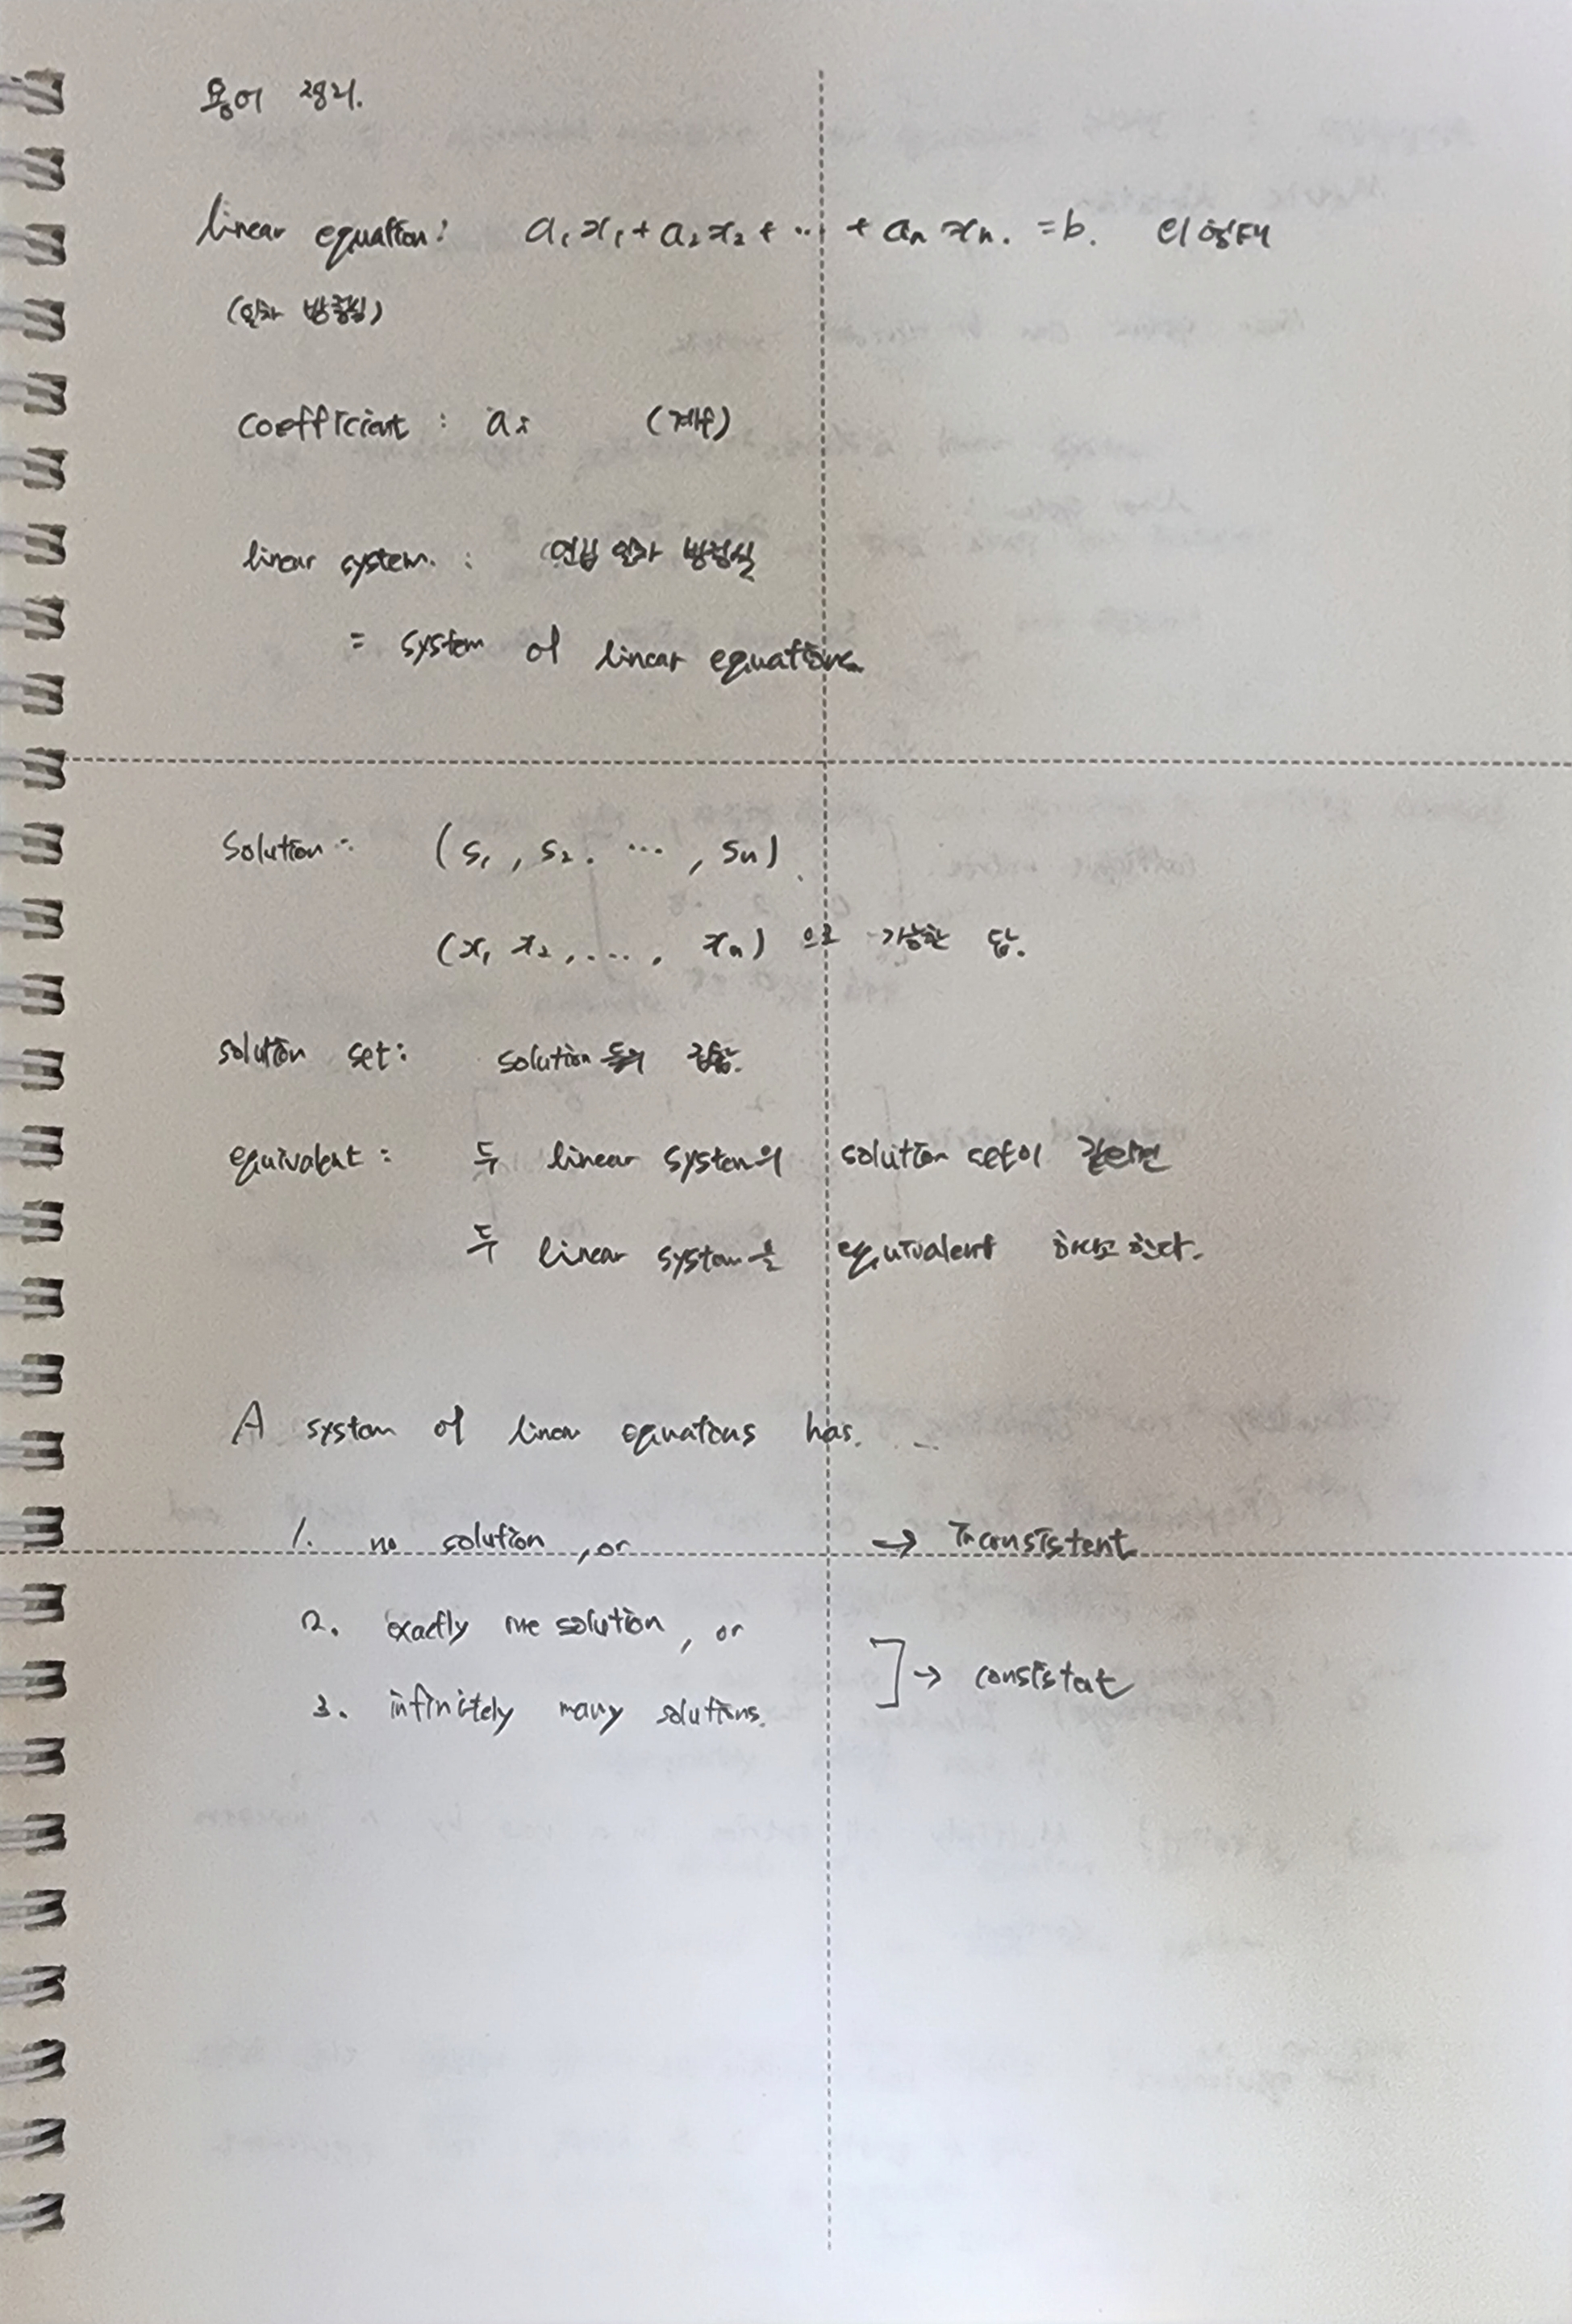 용어 정리.
linear equation: a₁x₁ + a₂x₂ + ⋯ + aₙxₙ. = b. 의 형태
(일차 방정식)
coefficient : aᵢ (계수)
linear system. : 연립 일차 방정식
= system of linear equations.
Solution : (s₁, s₂. ⋯, sₙ).
(x₁ x₂, ...., xₙ) 으로 가능한 답.
solution set: solution들의 집합.
equivalent : 두 linear system의 solution set이 같으면
두 linear system을 equivalent 하다고 한다.
A system of linear equations has. ...
1. no solution, or → Inconsistent
2. exactly one solution, or
3. infinitely many solutions. ] → consistent